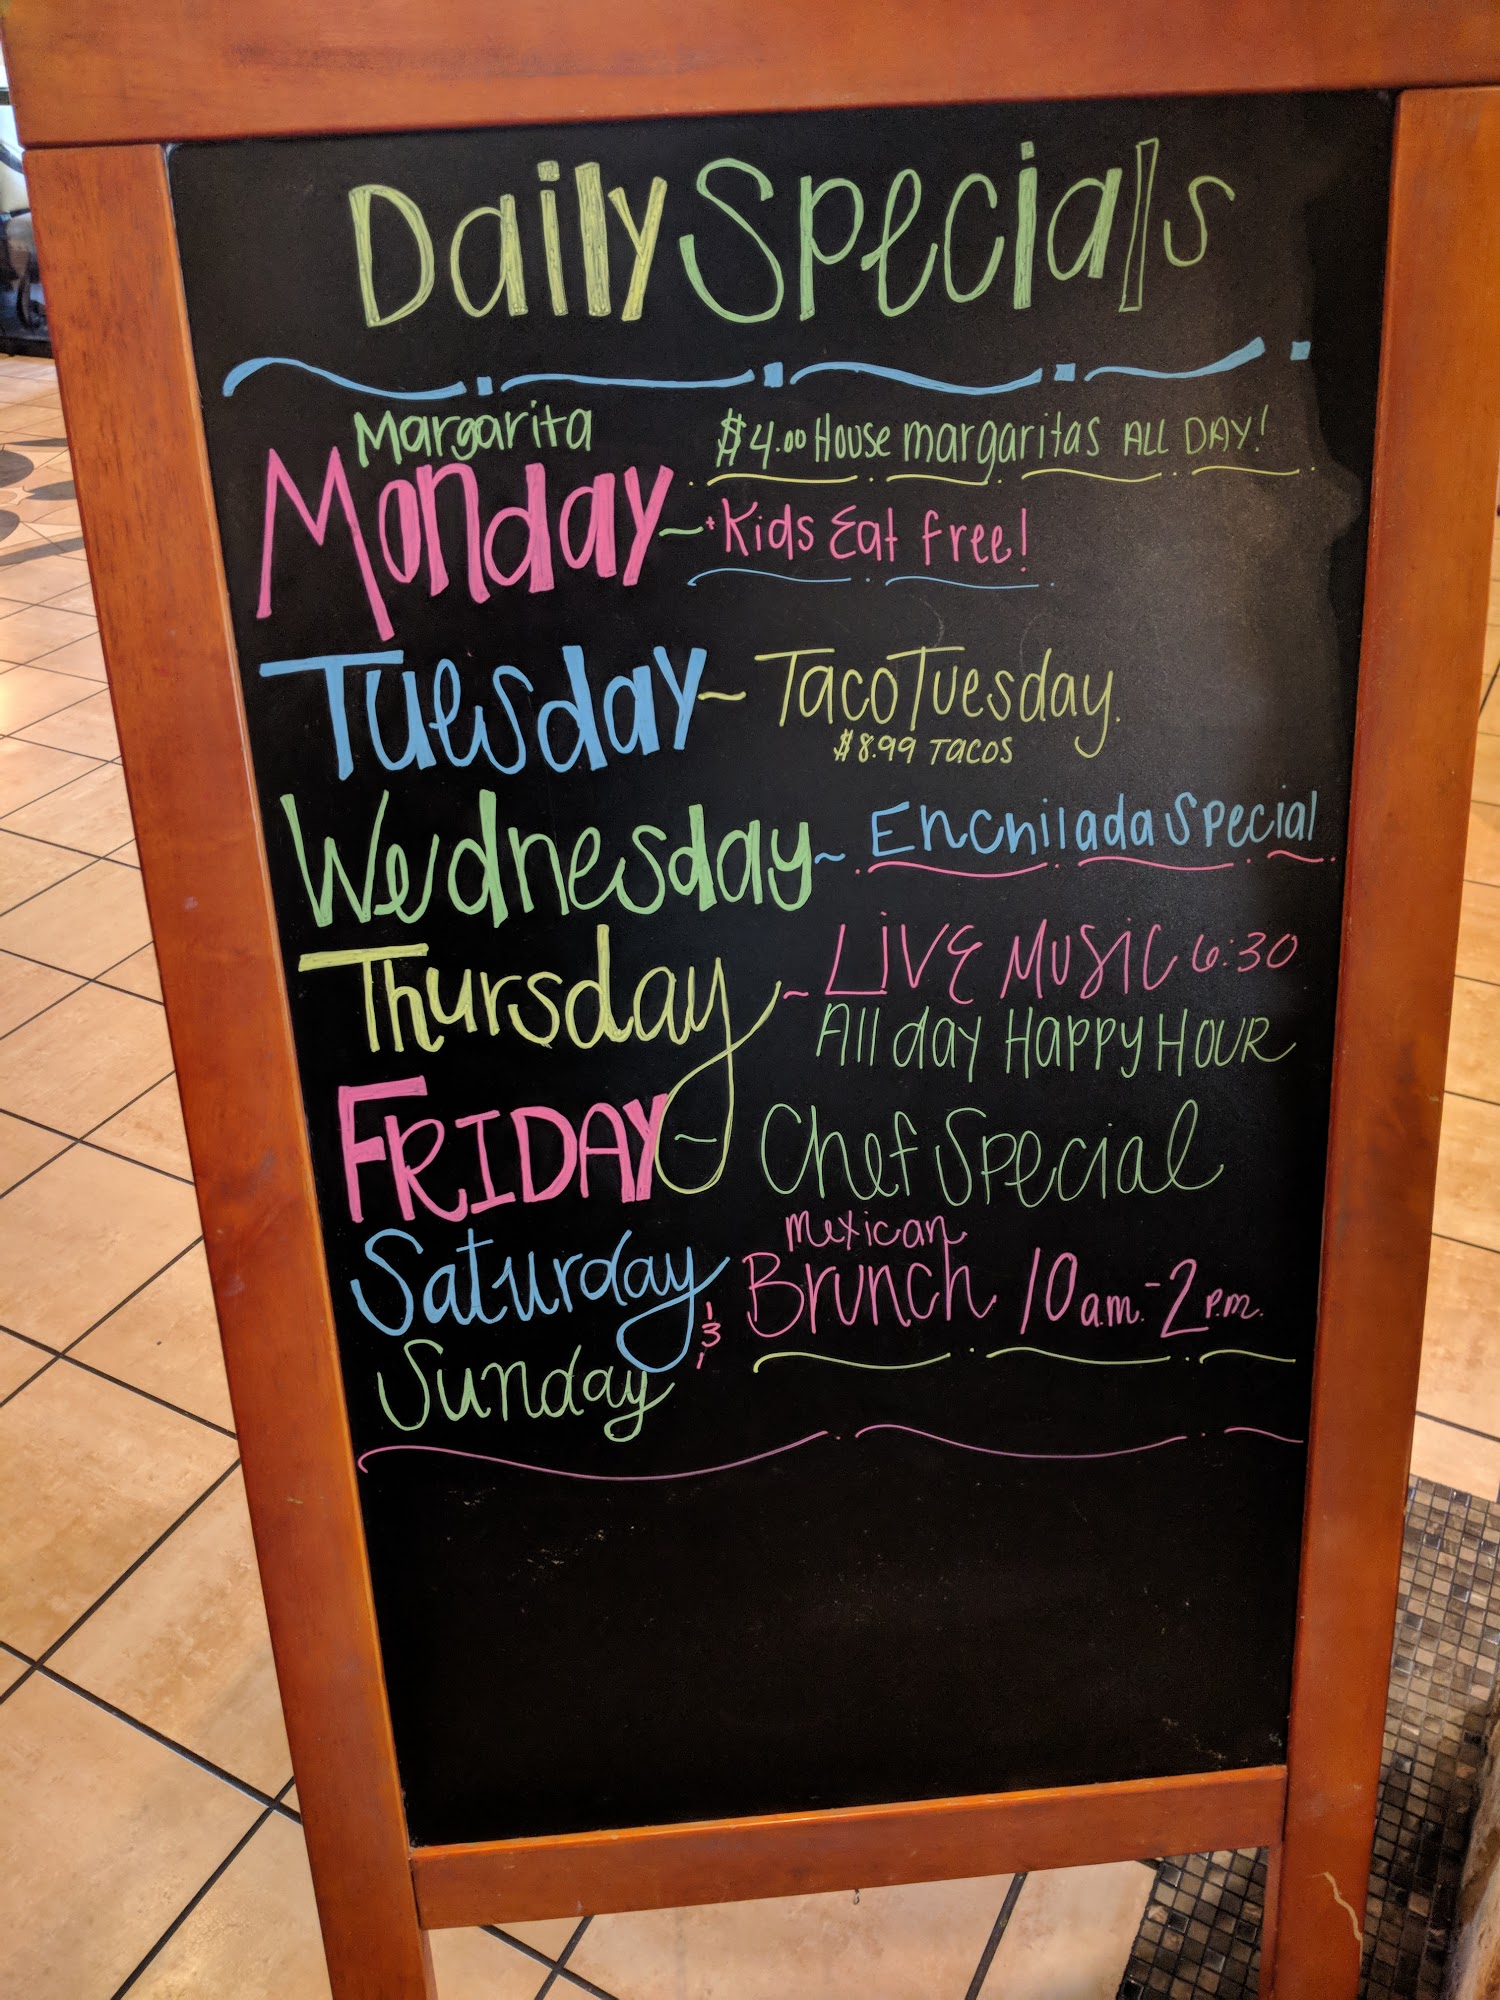 Daily Specials
Margarita $4.00 House margaritas ALL DAY!
Monday ~ Kids Eat free!
Tuesday ~ Taco Tuesday.
$8.99 TACOS
Wednesday ~ Enchilada Special
Thursday ~ LIVE MUSIC 6:30
All day Happy HOUR
FRIDAY ~ Chef Special
Mexican
Saturday & Brunch 10 a.m. - 2 p.m.
Sunday